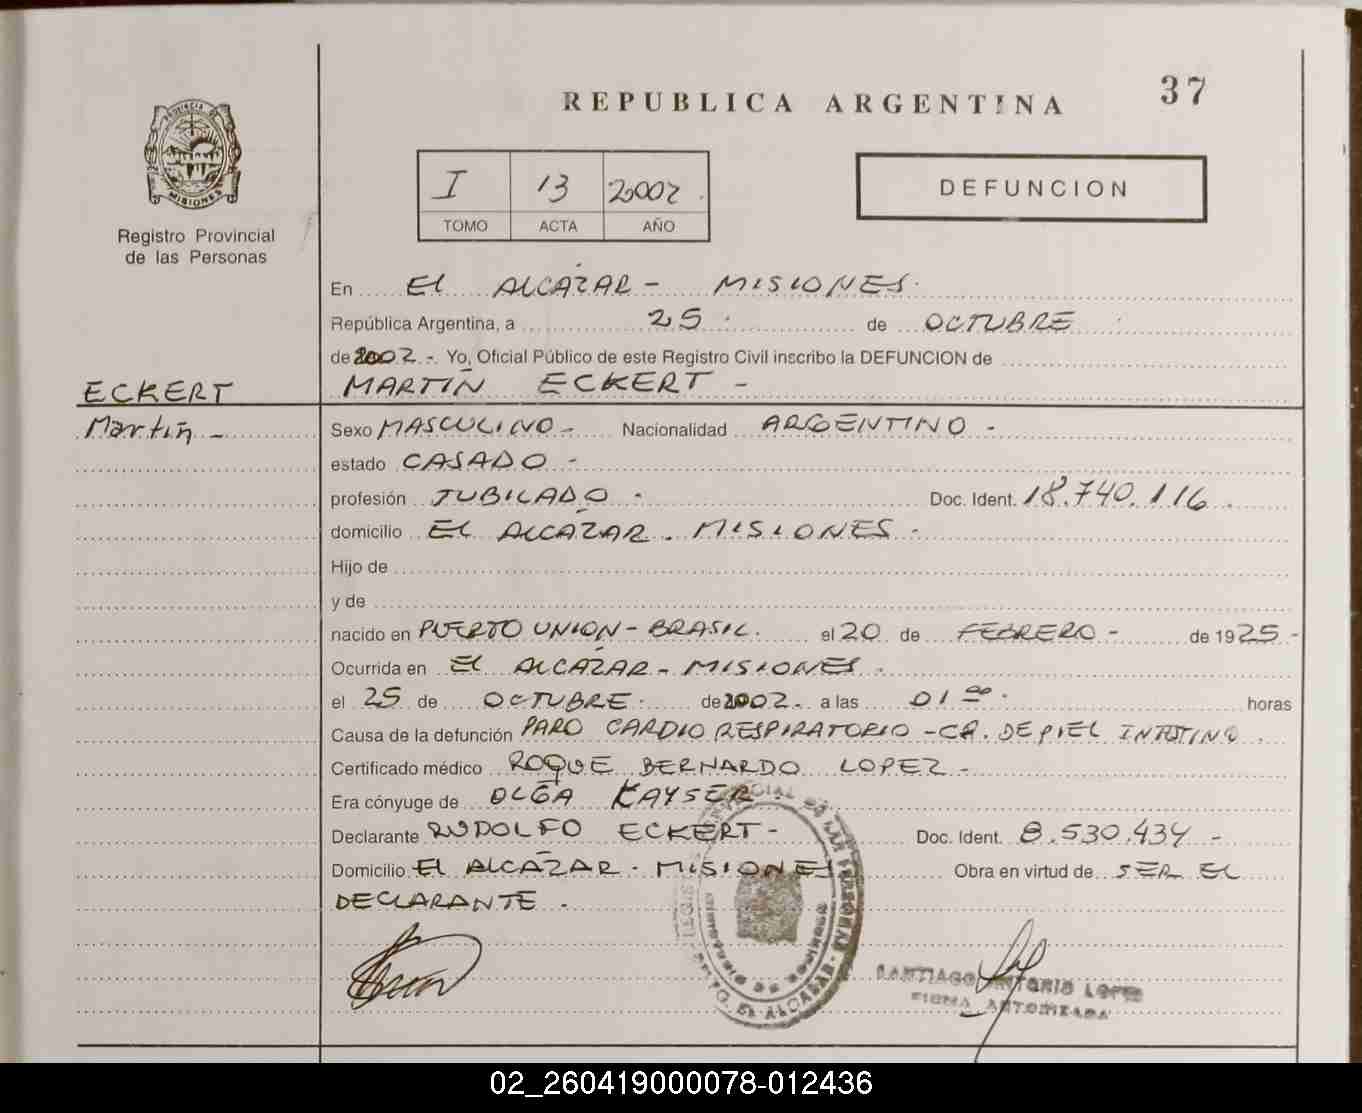 37
REPUBLICA ARGENTINA
PROVINCIA DE
MISIONES
Registro Provincial
de las Personas
I 13 2002.
TOMO ACTA AÑO
DEFUNCION
En EL ALCÁZAR - MISIONES.
República Argentina, a 25 de OCTUBRE
de 2002.- Yo, Oficial Público de este Registro Civil inscribo la DEFUNCION de
ECKERT
Martín -
MARTÍN ECKERT -
Sexo MASCULINO - Nacionalidad ARGENTINO -
estado CASADO -
profesión JUBILADO - Doc. Ident. 18.740.116.
domicilio EL ALCÁZAR. MISIONES -
Hijo de
y de
nacido en PUERTO UNION - BRASIL. el 20 de FEBRERO - de 1925-
Ocurrida en EL ALCÁZAR - MISIONES -
el 25 de OCTUBRE. de 2002. a las 01 00. horas
Causa de la defunción PARO CARDIO RESPIRATORIO - CA. DE PIEL INTESTINO.
Certificado médico ROQUE BERNARDO LOPEZ -
Era cónyuge de OLGA KAYSER
Declarante RUDOLFO ECKERT - Doc. Ident. 8.530.434 -
Domicilio EL ALCÁZAR. MISIONES Obra en virtud de SER EL
DECLARANTE.
DE LAS PERSONAS
DPTO. EL ALCAZAR
SANTIAGO ANTONIO LOPEZ
FIRMA AUTORIZADA
02_260419000078-012436